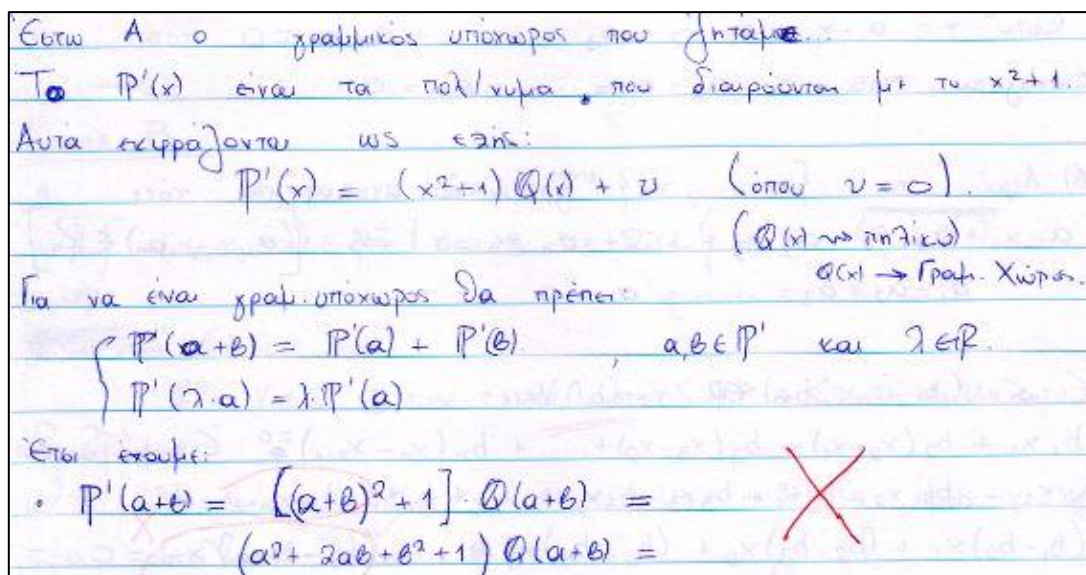 Έστω Α ο γραμμικός υπόχωρος που ζητάμε.
Τα ℙ'(x) είναι τα πολ/νυμα που διαιρούνται με το x²+1
Αυτά εκφράζονται ως εξής:
ℙ'(x) = (x²+1) ℚ(x) + υ (όπου υ = 0)
(ℚ(x) → πηλίκο)
Q(x) → Γραμ. Χώρος.
Για να είναι γραμ. υπόχωρος θα πρέπει
ℙ'(a+b) = ℙ'(a) + ℙ'(b) , a,b ∈ ℙ' και λ∈ℝ.
ℙ'(λ·a) = λ ℙ'(a)
Έτσι έχουμε:
· ℙ'(a+b) = [(a+b)² + 1] · ℚ(a+b) =
(a² + 2ab + b² + 1) ℚ(a+b) =